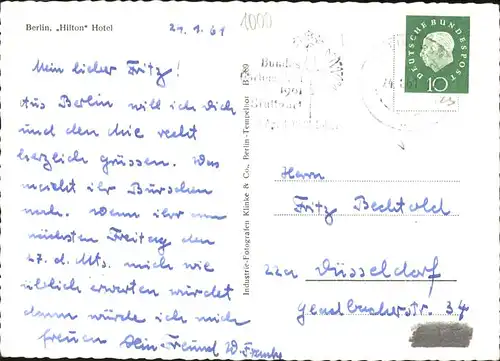 Berlin, „Hilton" Hotel
24.1.61
1000
Mein lieber Fritz!
Aus Berlin will ich Dich
und den Chie recht
herzlich grüssen. Was
macht ihr Burschen
noch. Wenn ihr am
nächsten Freitag den
27. d. Mts. mich wie
üblich erwarten würdet
dann würde ich mich
freuen Dein Freund W. Franke
Industrie-Fotografen Klinke & Co., Berlin-Tempelhof
Bundes
1961
Stuttgart
DEUTSCHE BUNDESPOST
10
Herrn
Fritz Bechtold
22a Düsseldorf
Gladbacherstr. 34